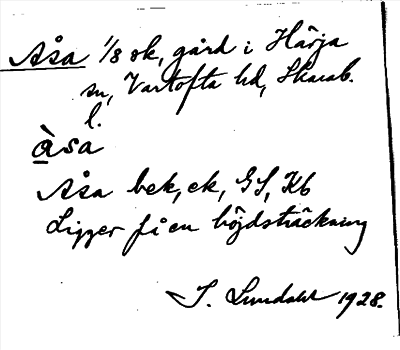 Åsa 1/8 sk, gård i Härja
sn, Vartofta hd, Skarab.
l.
àsa
Åsa bek, ek, GS, Kb
Ligger på en höjdsträckning
S. Lundahl 1928.